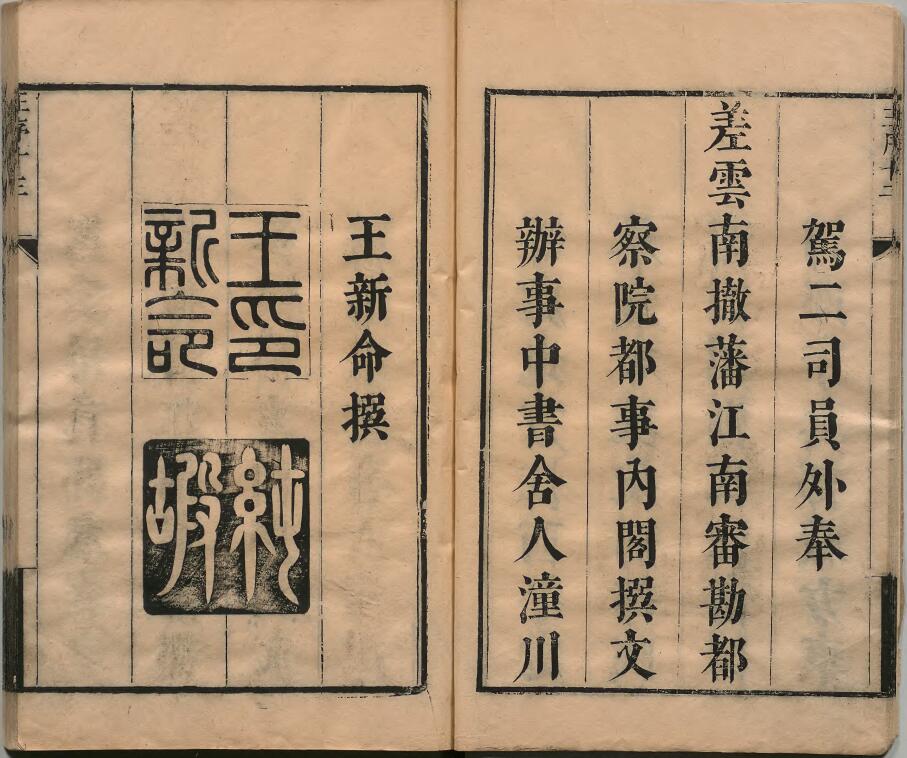 駕二司員外奉
差雲南撤藩江南審勘都
察院都事內閣撰文
辦事中書舍人潼川
王新命撰
王印
新命
純
嘏